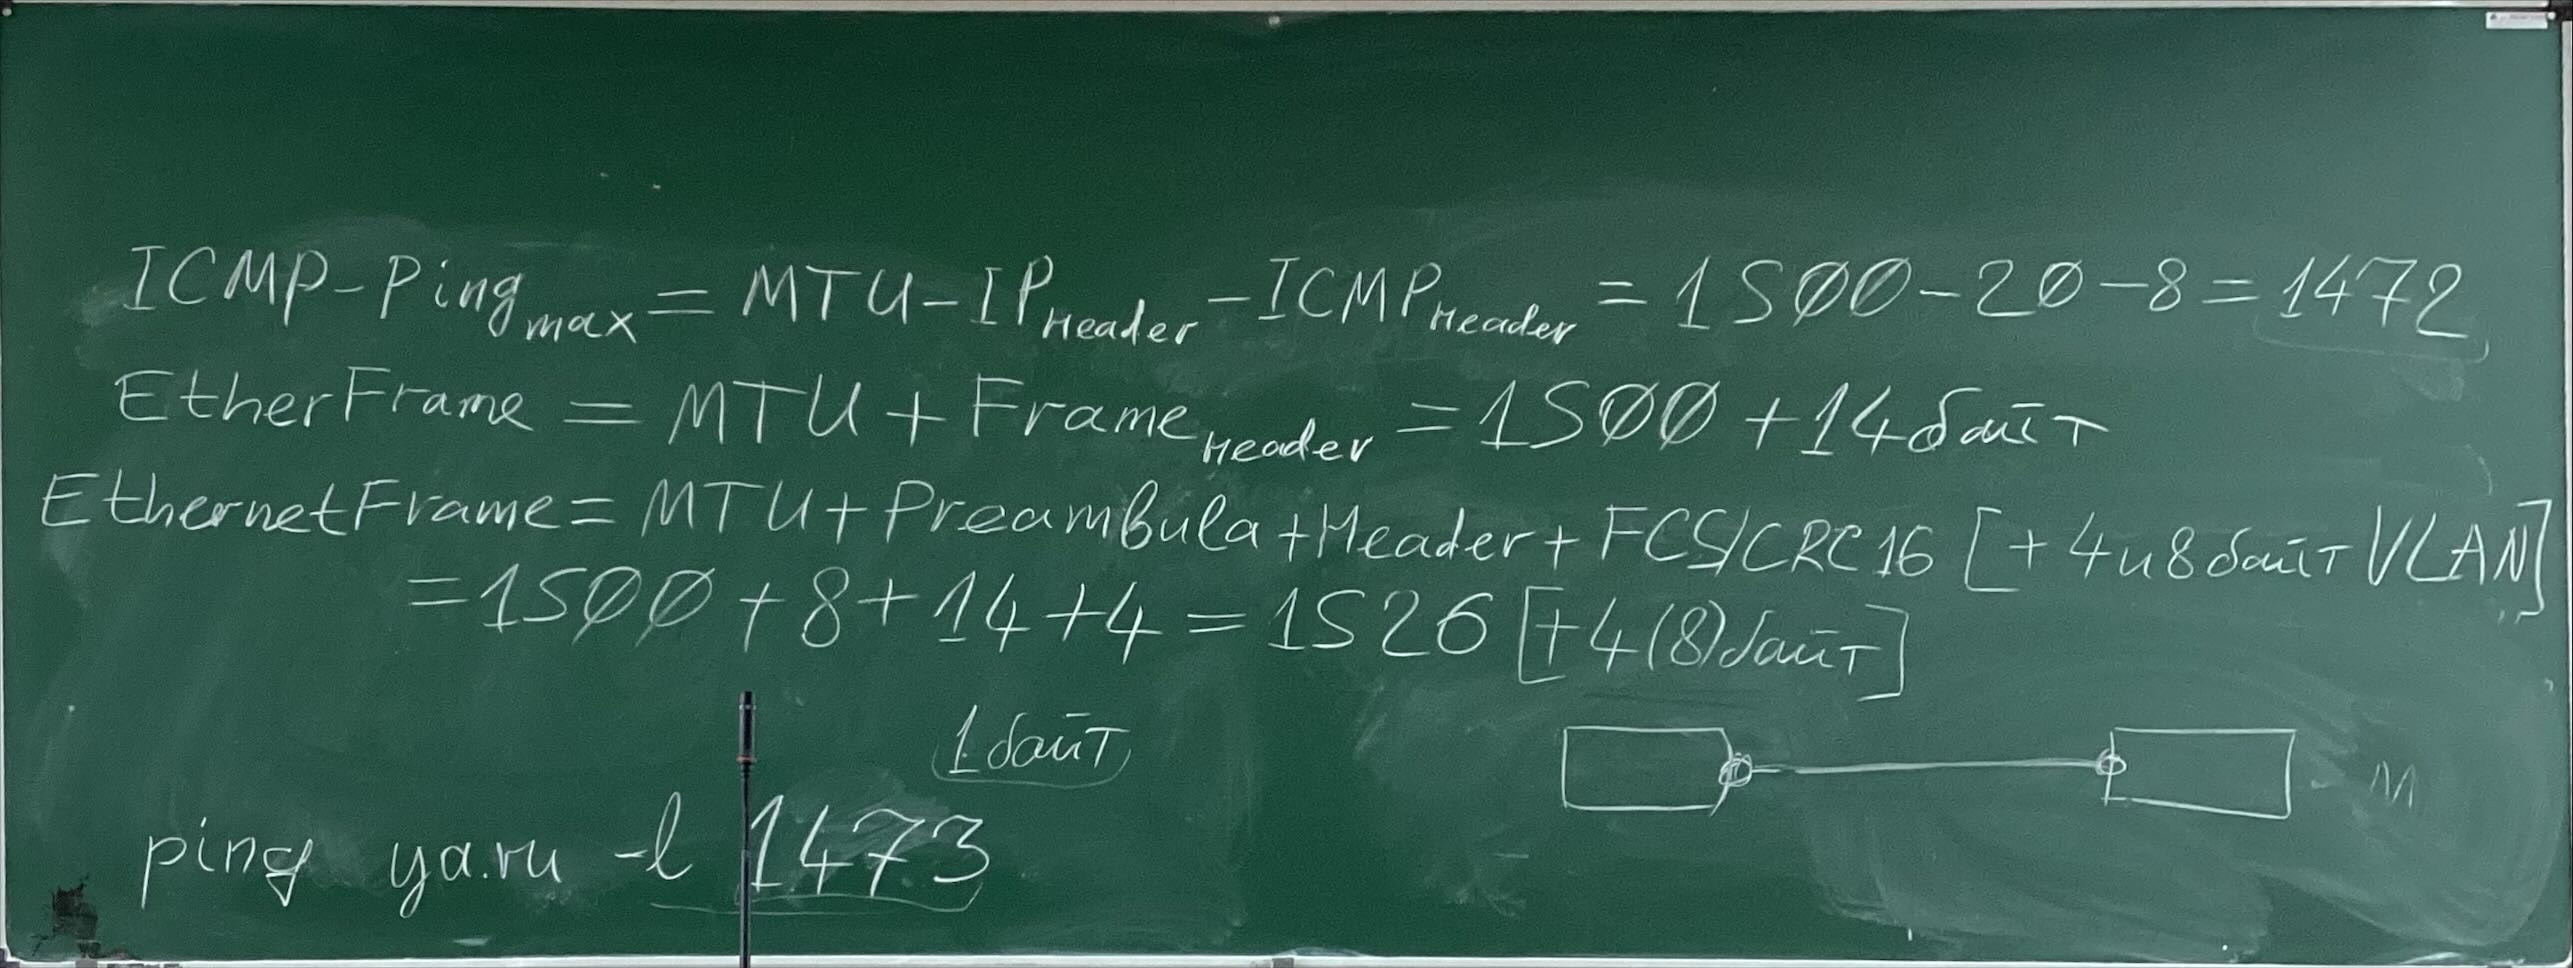 ICMP-Ping max = MTU - IP Header - ICMP Header = 1500 - 20 - 8 = 1472
EtherFrame = MTU + Frame Header = 1500 + 14 байт
EthernetFrame = MTU + Preambula + Header + FCS/CRC16 [+ 4 и 8 байт VLAN]
= 1500 + 8 + 14 + 4 = 1526 [+ 4 (8) байт]
1 байт
ping ya.ru -l 1473